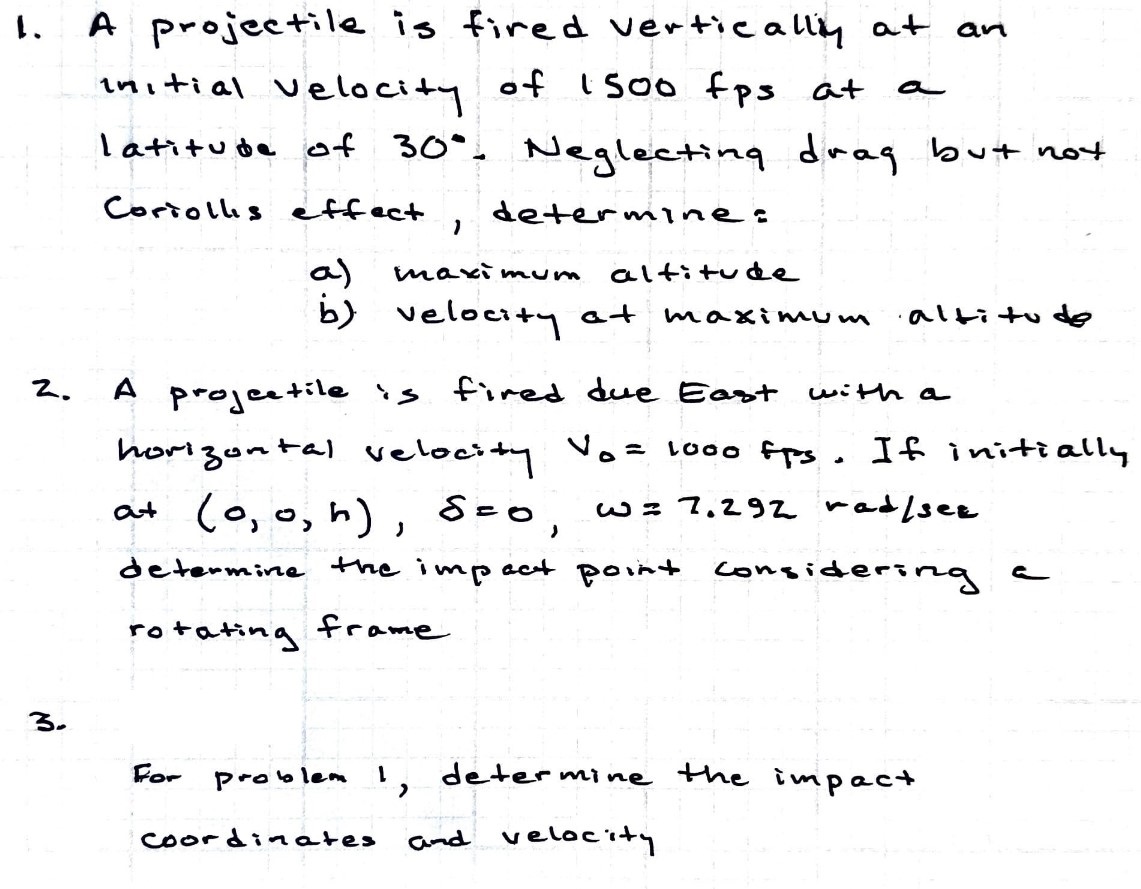 1. A projectile is fired vertically at an
initial velocity of 1500 fps at a
latitude of 30°. Neglecting drag but not
Coriollis effect, determine:
a) maximum altitude
b) velocity at maximum altitude
2. A projectile is fired due East with a
horizontal velocity V₀ = 1000 fps. If initially
at (0, 0, h), δ=0, ω = 7.292 rad/sec
determine the impact point considering a
rotating frame
3.
For problem 1, determine the impact
coordinates and velocity